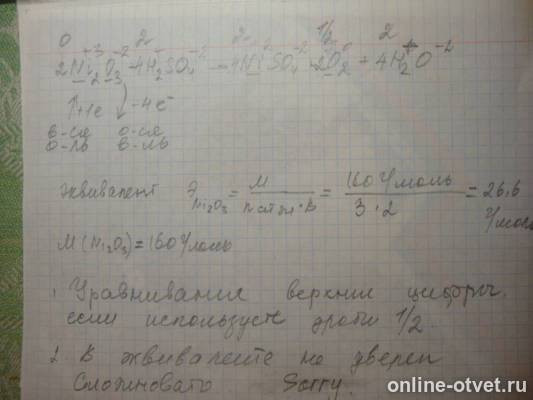 0 +3 -2 2 2 1/2 2
2Ni2O3 + 4H2SO4 → 4NiSO4 + 2O2 + 4H2O-2
+1e -4e-
в-ся о-ся
о-ль в-ль
эквивалент ЭNi2O3 = M / n атом · B = 160 г/моль / 3 · 2 = 26,6 г/моль
M(Ni2O3) = 160 г/моль
1. Уравнивание верхние цифры,
если используете дроби 1/2.
2. В эквиваленте не уверен
Сложновато Sorry.
online-otvet.ru